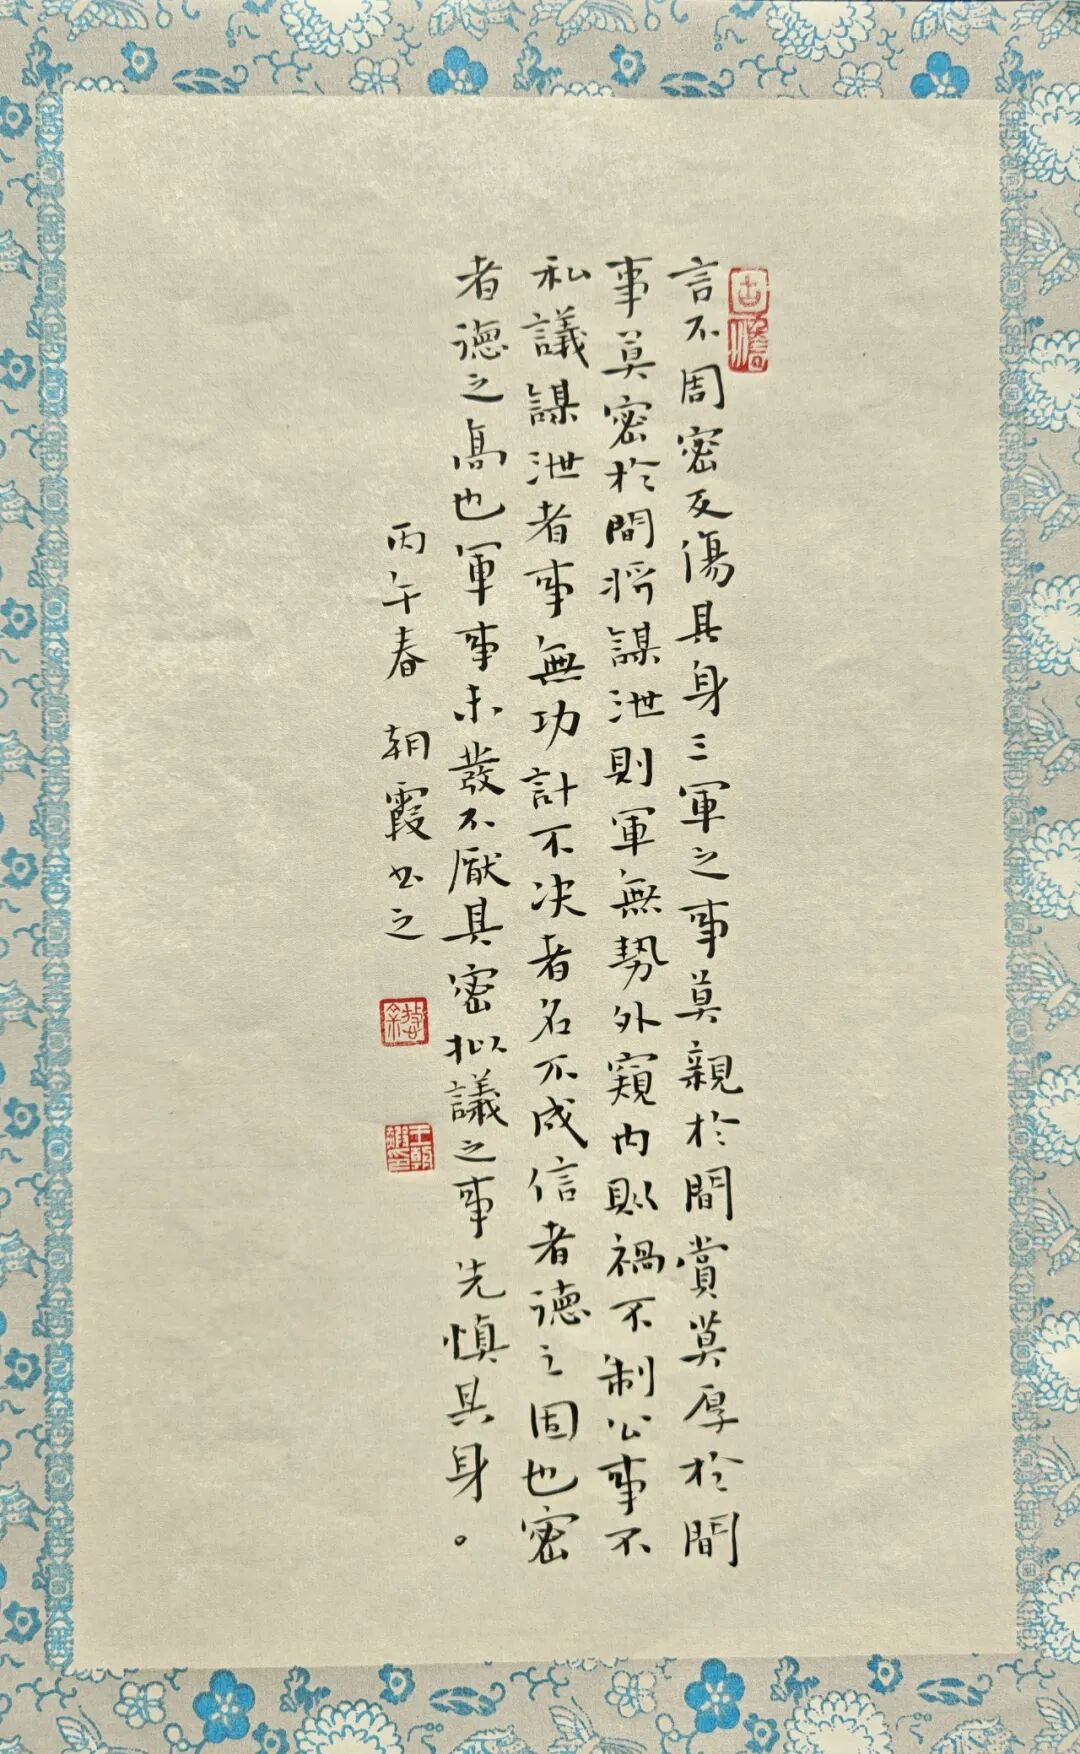 言不周密反傷其身三軍之事莫親於間賞莫厚於間
事莫密於間將謀泄則軍無勢外窺内則禍不制公事不
私議謀泄者事無功計不决者名不成信者德之固也密
者德之高也軍事未發不厭其密拟議之事先慎其身。
丙午春 朝霞书之